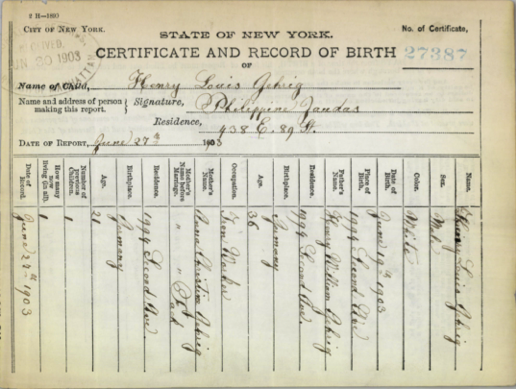 2 H—1890
CITY OF NEW YORK.
STATE OF NEW YORK.
No. of Certificate,
27387
RECEIVED
JUN 30 1903
MANHATTAN
CERTIFICATE AND RECORD OF BIRTH
OF
Name of Child, Henry Louis Gehrig
Name and address of person making this report.
Signature, Philippine Jandas
Residence, 438 E. 89 St.
DATE OF REPORT, June 27th 1903
Name. Henry Louis Gehrig
Sex. Male
Color. White
Date of Birth. June 19th 1903
Place of Birth. 1994 Second Ave
Father's Name. Henry William Gehrig
Residence. 1994 Second Ave.
Birthplace. Germany
Age. 36
Occupation. Iron Worker
Mother's Name. Anna Christina Gehrig
Mother's Name before Marriage. " " Fack
Residence. 1994 Second Ave
Birthplace. Germany
Age. 21
Number of previous Children. 1
How many now living (in all). 1
Date of Record. June 27th 1903